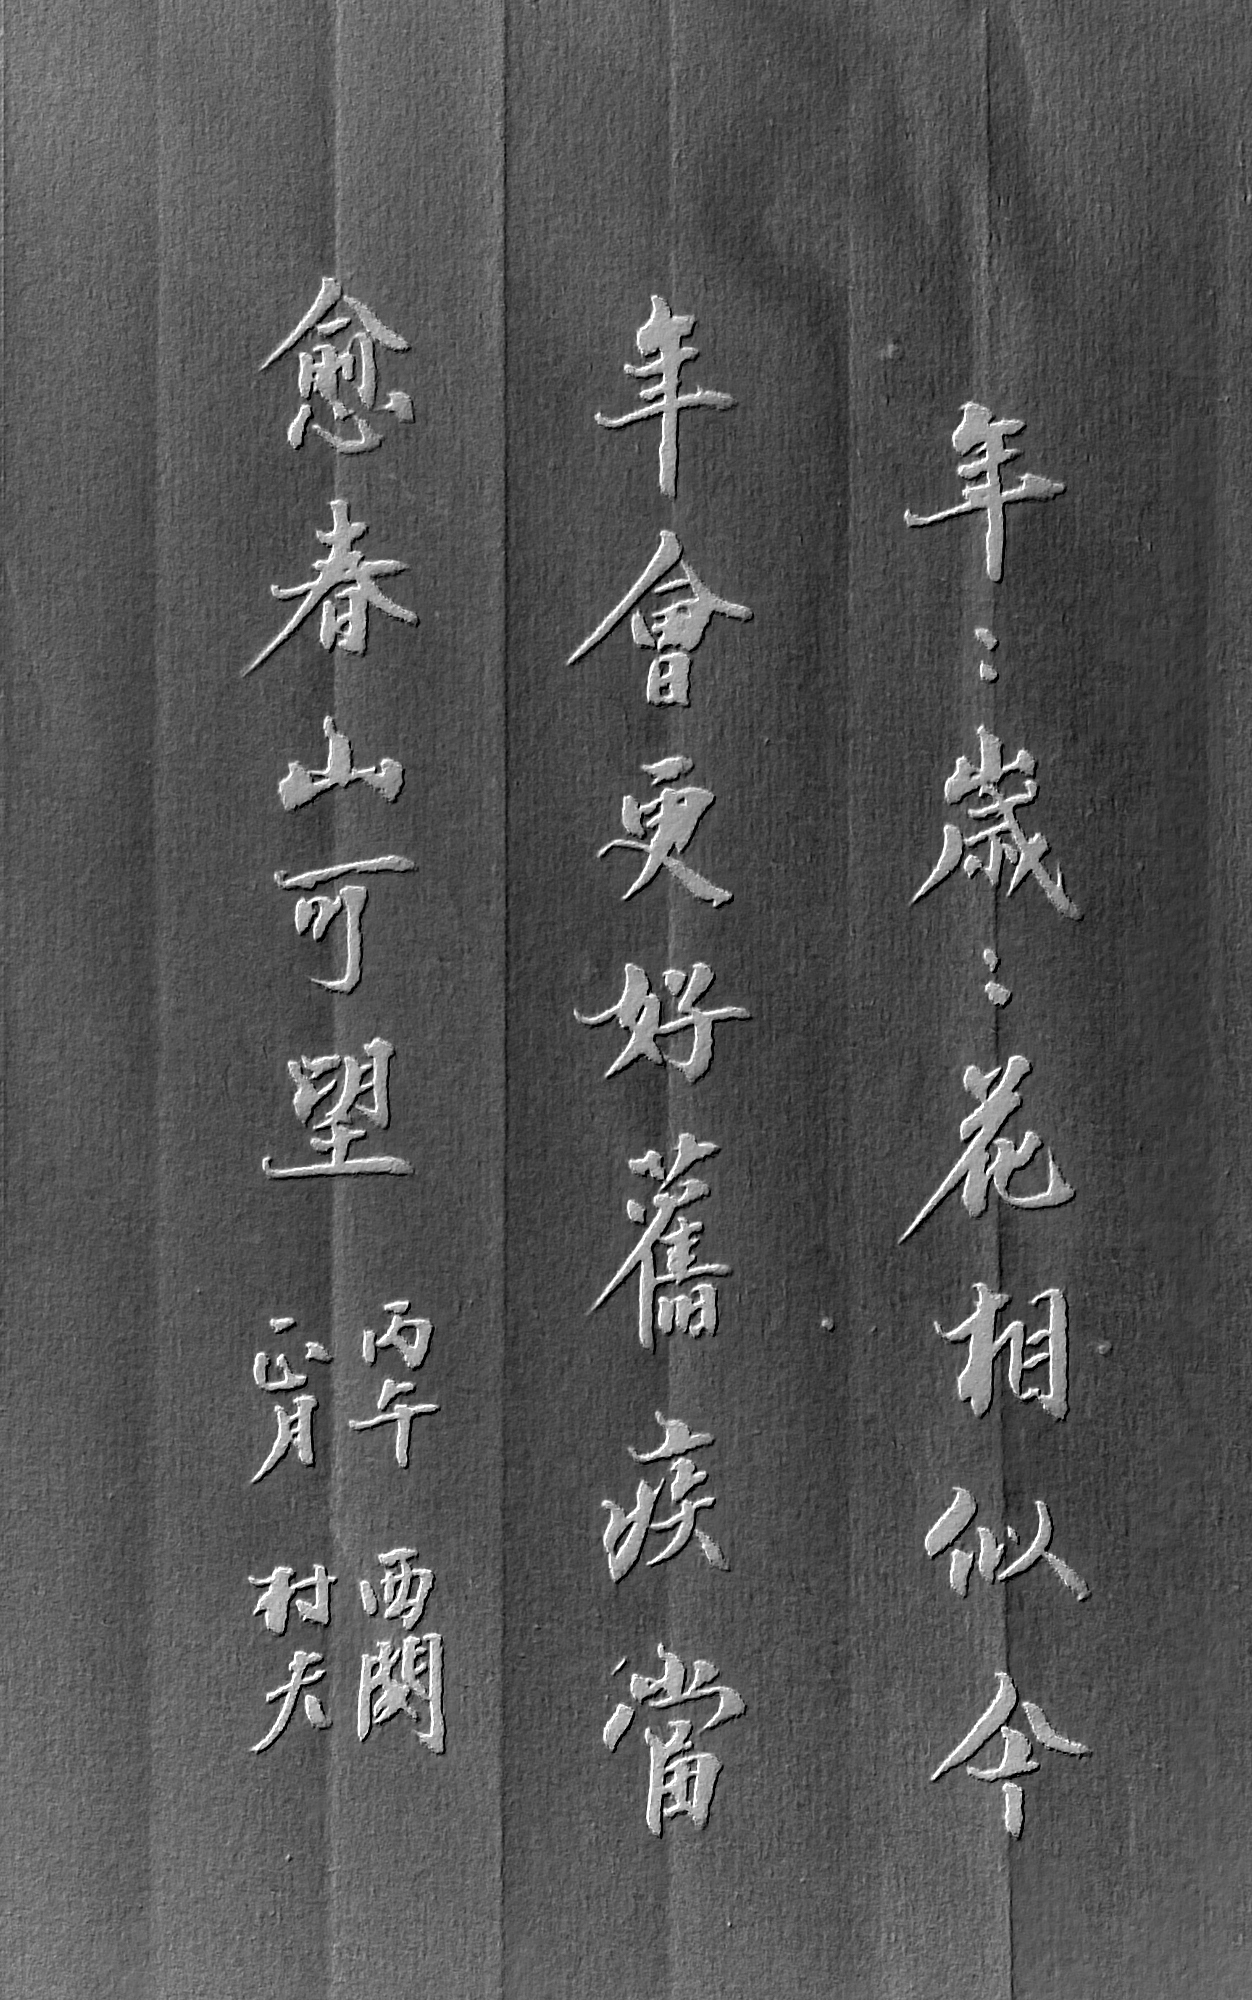 年々歲々花相似今
年會更好舊疾當
愈春山可望
丙午 西関
正月 村夫